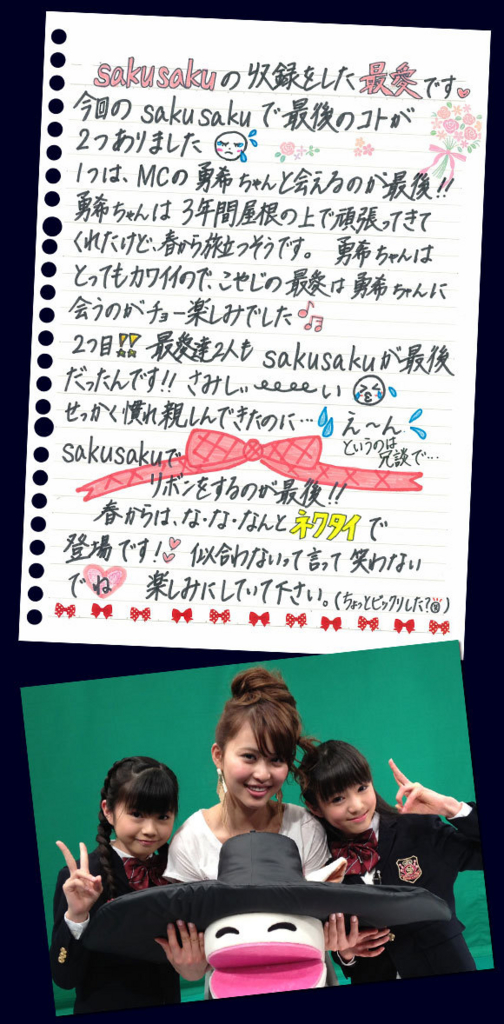 sakusakuの収録をした最愛です
今回のsakusakuで最後のコトが
2つありました
1つは、MCの勇希ちゃんと会えるのが最後!!
勇希ちゃんは3年間屋根の上で頑張ってきて
くれたけど、春から旅立つそうです。 勇希ちゃんは
とってもカワイイので、こやじの最愛は勇希ちゃんに
会うのがチョー楽しみでした♪
2つ目!! 最愛達2人もsakusakuが最後
だったんです!! さみしぃeeeeい
せっかく慣れ親しんできたのに… え〜ん
というのは
冗談で…
sakusakuで
リボンをするのが最後!!
春からは、な・な・なんとネクタイで
登場です! 似合わないって言って笑わない
でね 楽しみにしていて下さい。(ちょっとビックリした?)